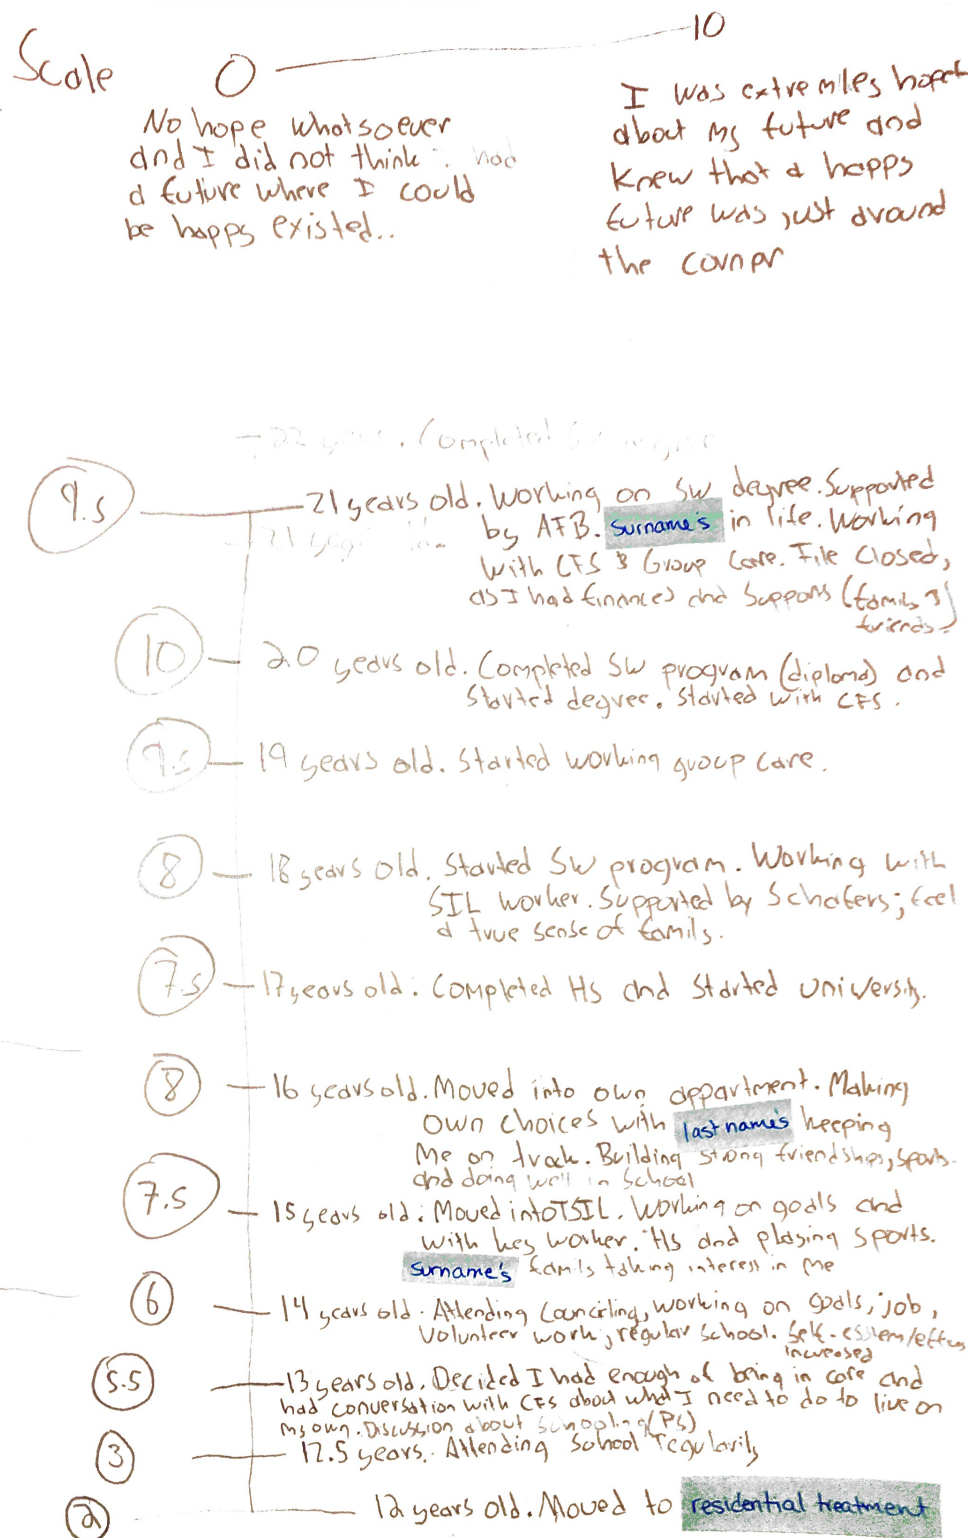 Scale 0 10
No hope whatsoever
and I did not think had
a future where I could
be happy existed..
I was extremley
about my future and
knew that a happy
future was just around
the corner
22 . Completed
9.5 21 years old. Working on SW degree. Supported
by AFB. surname's in life. Working
21
with CFS & Group Care. File Closed,
as I had finances and supports (family &
friends)
10 20 years old. Completed SW program (diploma) and
started degree. started with CFS.
9.5 19 years old. Started working group care.
8 18 years old. Started SW program. Working with
SIL worker. Supported by Schafers; feel
a true sense of family.
7.5 17 years old. Completed HS and started university.
8 16 years old. Moved into own appartment. Making
own choices with last name's keeping
me on track. Building strong friendships, sports.
and doing well in school
7.5 15 years old. Moved into TSIL. Working on goals and
with key worker. Hs and playing sports.
surname's family taking interest in me
6 14 years old. Attending Councirling, working on goals, job,
Volunteer work, regular school. Self-
increased
5.5 13 years old. Decided I had enough of being in care and
had conversation with CFS about what I need to do to live on
my own. Discussion about schooling (PS)
3 12.5 years. Attending School regularily
2 12 years old. Moved to residential treatment